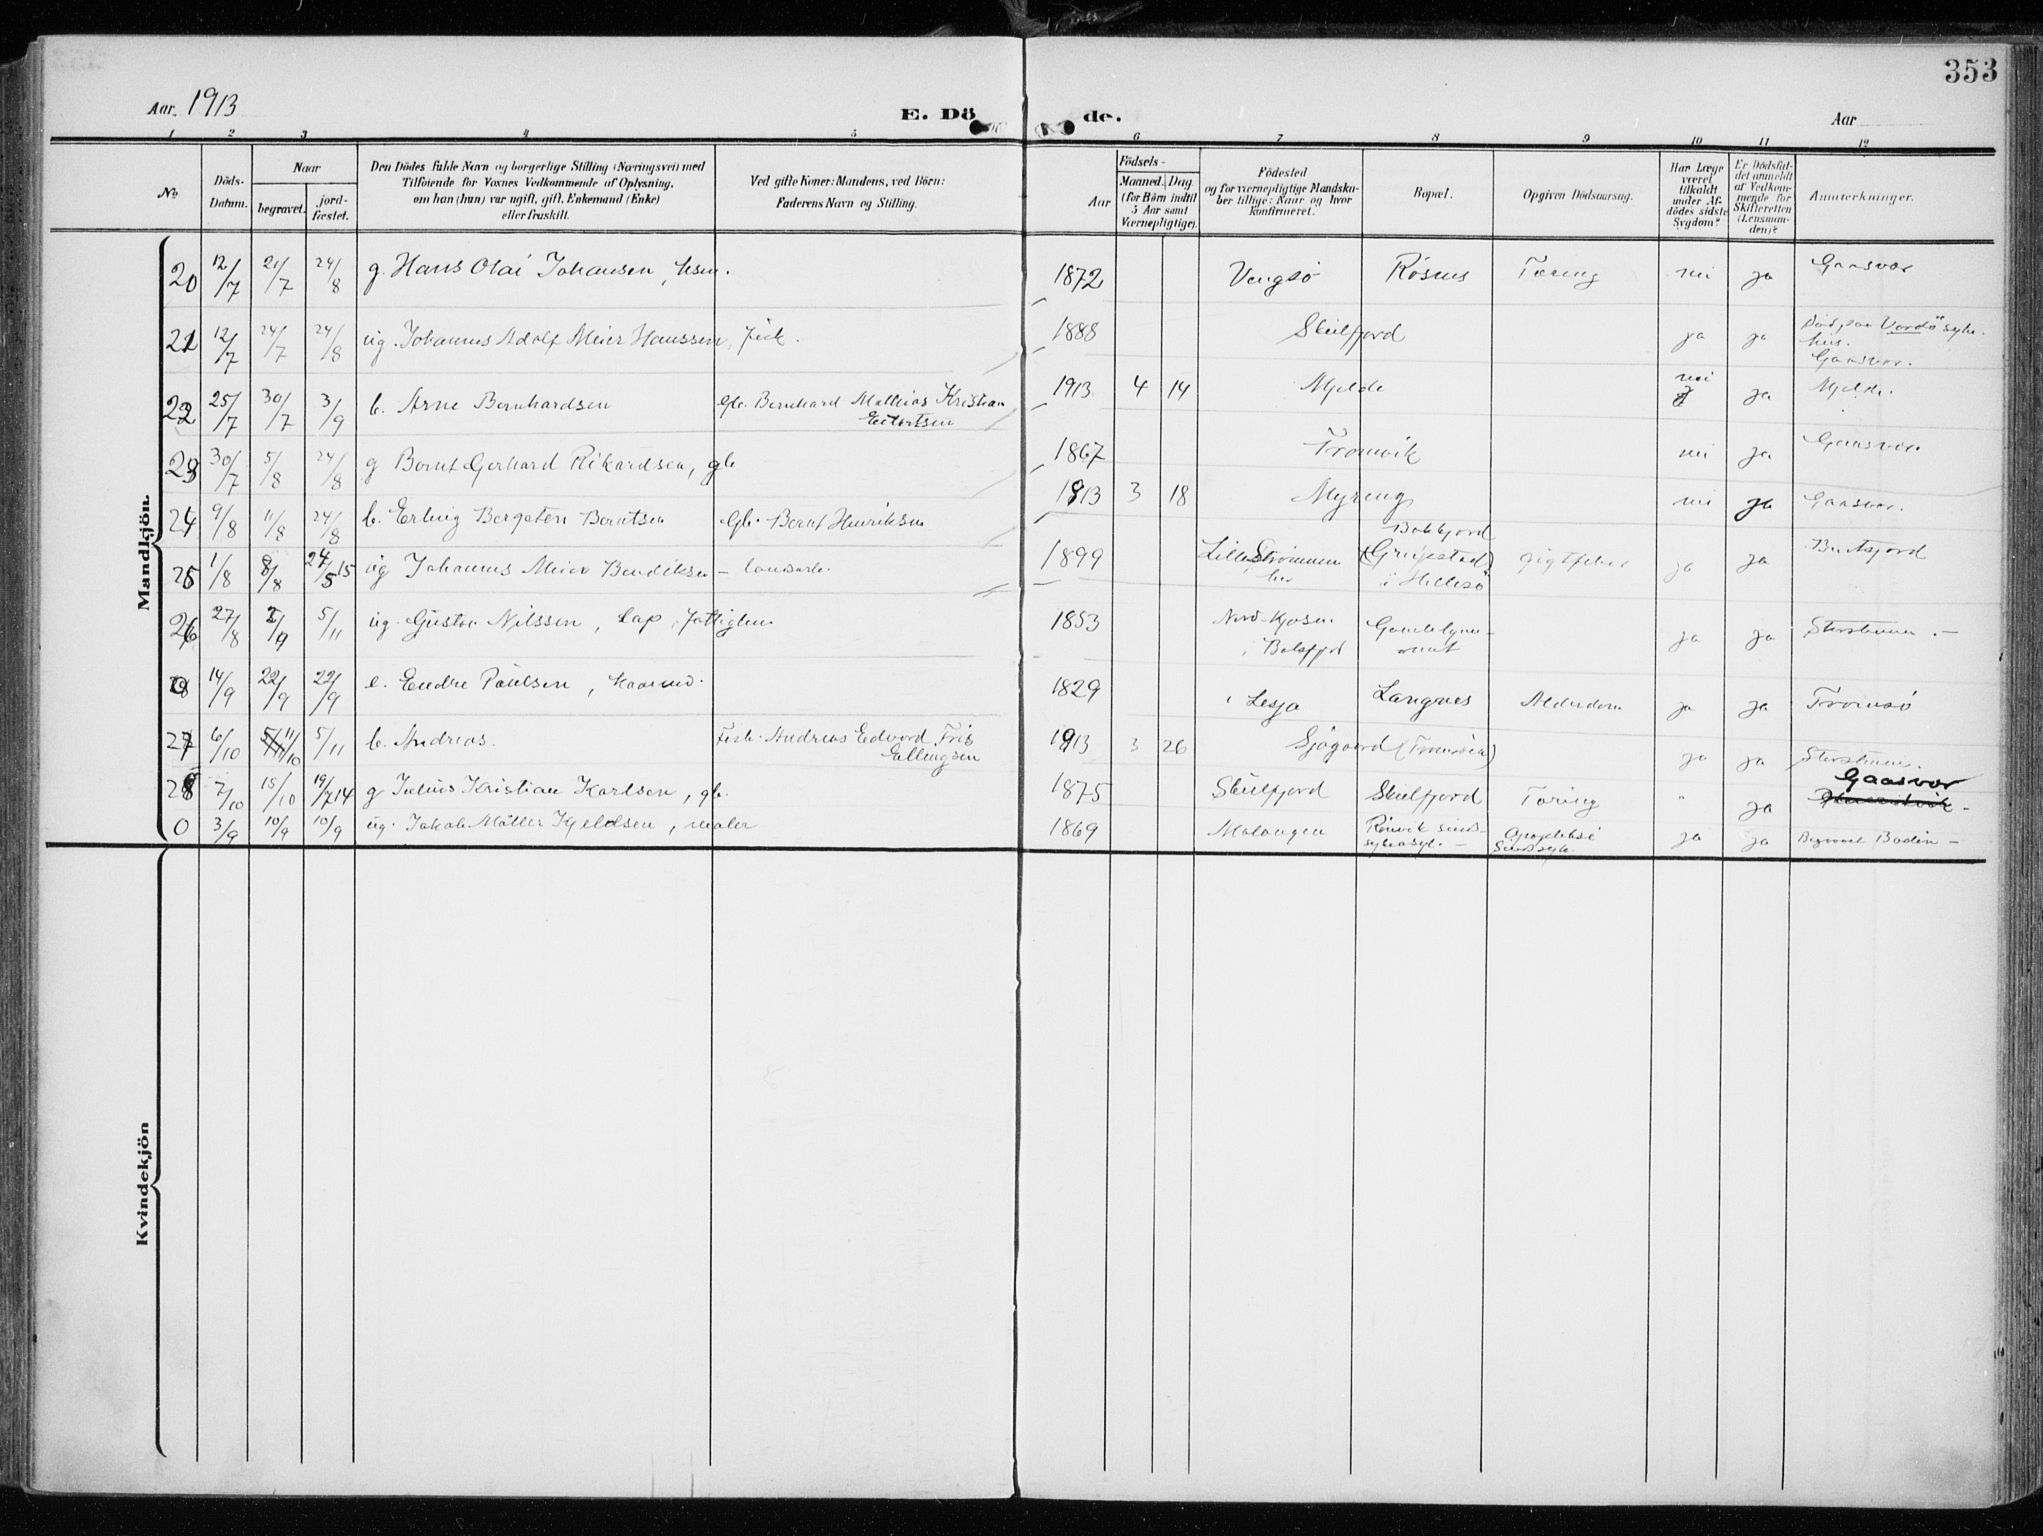 353
Aar. 1913
E. Dö de.
Aar
1 2 3 4 5 6 7 8 9 10 11 12
No.
Döds-
Datum.
Naar
begravet.
jord-
fæstet.
Den Dödes fulde Navn og borgerlige Stilling (Næringsvei) med
Tilföiende for Voxnes Vedkommende af Oplysning,
om han (hun) var ugift, gift, Enkemand (Enke)
eller fraskilt.
Ved gifte Koner: Mandens, ved Börn:
Faderens Navn og Stilling.
Födsels-
Aar
Maaned. Dag
(for Börn indtil
5 Aar samt
Værnepligtige).
Födested
og for værnepligtige Mandska-
ber tillige: Naar og hvor
konfirmeret.
Bopæl.
Opgiven Dödsaarsag.
Har Læge
været
tilkaldt
under Af-
dödes sidste
Sygdom?
Er Dödsfal-
det anmeldt
af Vedkom-
mende for
Skifteretten
(Lensman-
den)?
Anmærkninger.
Mandkjön.
20 12/7 21/7 24/8 g. Hans Olai Johansen, 1872 Vengsö Rösnes Tæring nei ja Gaasvær
21 12/7 24/7 24/8 ug. Johannes Adolf Meier Hanssen, fisk. 1888 Skulfjord ja ja Död paa Vardö syke-
hus.
Gaasvær.
22 25/7 30/7 3/9 b. Arne Bernhardsen gb. Bernhard Mathias Kristian 1913 4 14 Mjelde nei ja Mjelde.
23 30/7 5/8 24/8 g Bernt Gerhard Rikardsen, gb 1867 Tromvik nei ja Gaasvær
24 9/8 11/8 24/8 b. Erling Bergeton Berntsen Gb. Bernt Henriksen 1913 3 18 Myreng nei ja Gaasvær.
25 1/8 8/8 24/5 15 ug Johannes Meier Bendiksen - 1899 Lille Strömmen
her
(Grøjestad)
i Hillesö
gigtfeber ja ja
26 27/8 5/11 ug. Gustav Nilssen, Lap, fattiglem 1853 Nord-Kjosen
i Balsfjord
ja ja
14/9 22/9 22/9 e. Endre Paulsen, kaarmd. 1829 i Lesja Langnes Alderdom ja ja Tromsö
27 6/10 11/10 5/11 b. Andreas. Fisk. Andreas Edvard Fris
Ellingsen
1913 3 26 Sjögaard (Tromsöen) ja ja
28 7/10 15/10 19/7 14 g Julius Kristian Karlsen, gb. 1875 Skulfjord Skulfjord Tæring " ja Gaasvær
0 3/9 10/9 10/9 ug. Jakob Möller Kjeldsen, maler 1869 Malangen Rönvik sinds-
sykeasyl. -
Apopleksi
Sindssyk.
ja ja Begravet Bodin -
Kvindekjön